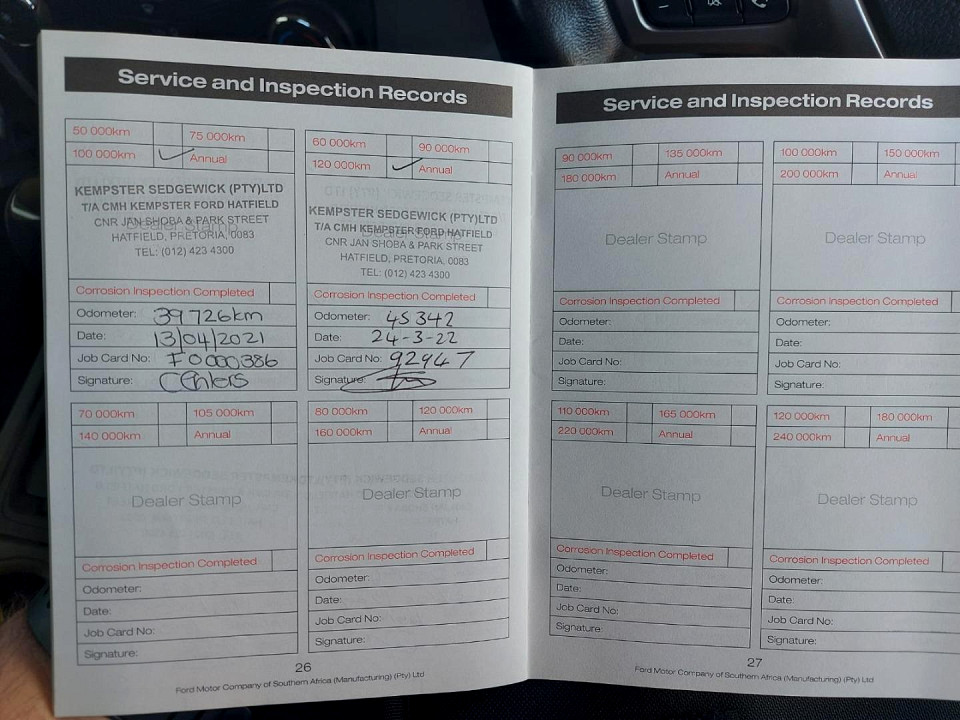 Service and Inspection Records
50 000km 75 000km
100 000km Annual
KEMPSTER SEDGEWICK (PTY)LTD
T/A CMH KEMPSTER FORD HATFIELD
CNR JAN SHOBA & PARK STREET
Dealer Stamp
HATFIELD, PRETORIA, 0083
TEL: (012) 423 4300
Corrosion Inspection Completed
Odometer: 39 726km
Date: 13/04/2021
Job Card No: F0000386
Signature:
60 000km 90 000km
120 000km Annual
KEMPSTER SEDGEWICK (PTY)LTD
T/A CMH KEMPSTER FORD HATFIELD
Dealer Stamp
CNR JAN SHOBA & PARK STREET
HATFIELD, PRETORIA, 0083
TEL: (012) 423 4300
Corrosion Inspection Completed
Odometer: 45 342
Date: 24-3-22
Job Card No: 92947
Signature:
70 000km 105 000km
140 000km Annual
Dealer Stamp
Corrosion Inspection Completed
Odometer:
Date:
Job Card No:
Signature:
80 000km 120 000km
160 000km Annual
Dealer Stamp
Corrosion Inspection Completed
Odometer:
Date:
Job Card No:
Signature:
26
Ford Motor Company of Southern Africa (Manufacturing) (Pty) Ltd
Service and Inspection Records
90 000km 135 000km
180 000km Annual
Dealer Stamp
Corrosion Inspection Completed
Odometer:
Date:
Job Card No:
Signature:
100 000km 150 000km
200 000km Annual
Dealer Stamp
Corrosion Inspection Completed
Odometer:
Date:
Job Card No:
Signature:
110 000km 165 000km
220 000km Annual
Dealer Stamp
Corrosion Inspection Completed
Odometer:
Date:
Job Card No:
Signature:
120 000km 180 000km
240 000km Annual
Dealer Stamp
Corrosion Inspection Completed
Odometer:
Date:
Job Card No:
Signature:
27
Ford Motor Company of Southern Africa (Manufacturing) (Pty) Ltd